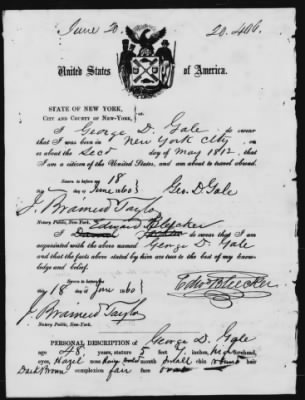 June 20. 20.406
United States of America.
STATE OF NEW YORK,
CITY AND COUNTY OF NEW-YORK, } ss.
I George D. Gale do swear
that I was born in New York City, on
or about the Second day of May 1812, that
I am a citizen of the United States, and am about to travel abroad.
Sworn to before me 18
day June 1860 } Geo. D Gale
J. Brainerd Taylor
Notary Public, New-York.
I Edward Bleecker do swear that I am
acquainted with the above named George D. Gale
and that the facts above stated by him are true to the best of my know-
ledge and belief.
Sworn to before me
18 day June 1860 } Edw Bleecker
J. Brainerd Taylor
Notary Public, New-York.
PERSONAL DESCRIPTION of George D. Gale
age 48 years, stature 5 feet inches, High forehead,
eyes, Hazel nose mouth small chin round hair
Dark Brown complexion fair face oval